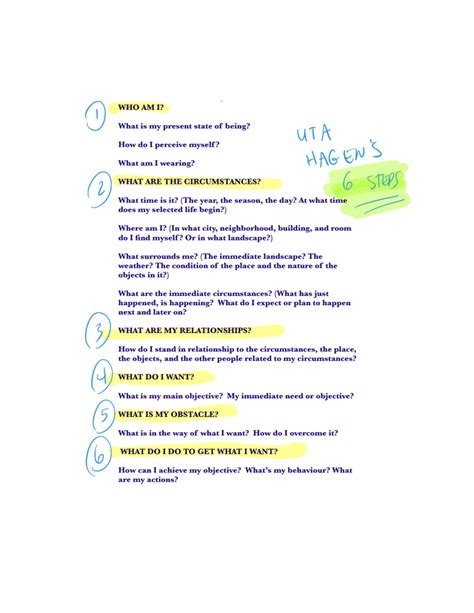 1 WHO AM I?
What is my present state of being?
How do I perceive myself?
What am I wearing?
UTA
HAGEN'S
6 STEPS
2 WHAT ARE THE CIRCUMSTANCES?
What time is it? (The year, the season, the day? At what time
does my selected life begin?)
Where am I? (In what city, neighborhood, building, and room
do I find myself? Or in what landscape?)
What surrounds me? (The immediate landscape? The
weather? The condition of the place and the nature of the
objects in it?)
What are the immediate circumstances? (What has just
happened, is happening? What do I expect or plan to happen
next and later on?
3 WHAT ARE MY RELATIONSHIPS?
How do I stand in relationship to the circumstances, the place,
the objects, and the other people related to my circumstances?
4 WHAT DO I WANT?
What is my main objective? My immediate need or objective?
5 WHAT IS MY OBSTACLE?
What is in the way of what I want? How do I overcome it?
6 WHAT DO I DO TO GET WHAT I WANT?
How can I achieve my objective? What's my behaviour? What
are my actions?